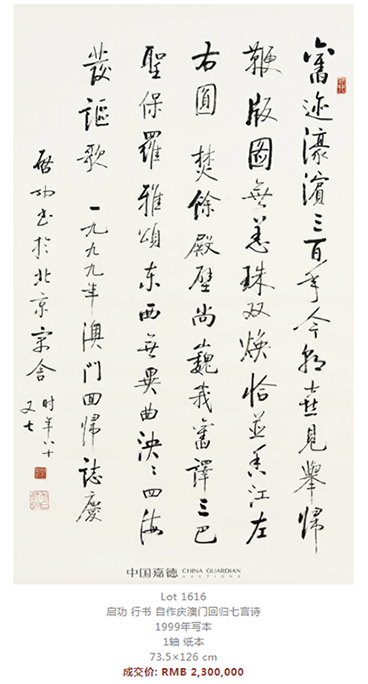 舊迹濠濱三百年今朝喜見舉歸
鞭版圖無恙珠双焕恰並香江左
右圓 焚餘殿壁尚巍峩舊譯三巴
聖保羅雅頌东西無異曲泱〻四海
發謳歌 一九九九年澳門回歸誌慶
啓功书於北京寓舍 时年八十
又七
中国嘉德 CHINA GUARDIAN
AUCTIONS
Lot 1616
启功 行书 自作庆澳门回归七言诗
1999年写本
1轴 纸本
73.5×126 cm
成交价: RMB 2,300,000